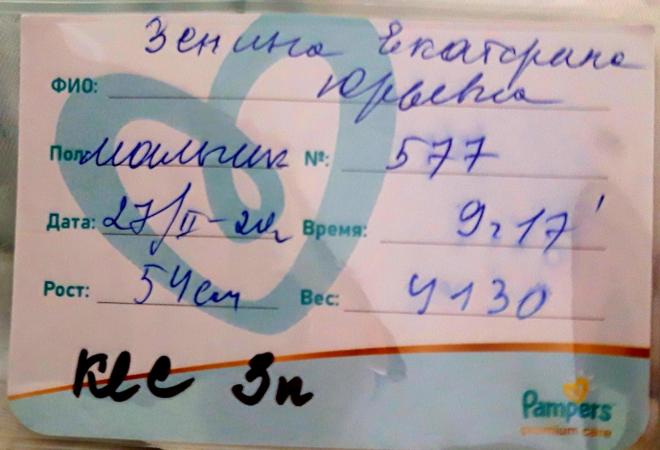 Зенина Екатерина
ФИО: Юрьевна
Пол: мальчик №: 577
Дата: 27/II-20г Время: 9ч 17'
Рост: 54см Вес: 4130
кес 3п
Pampers
premium care